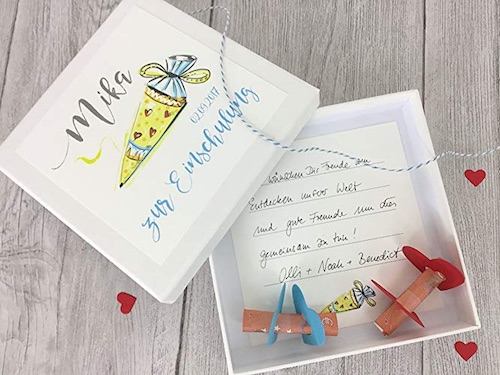 Mika
02.09.2017
zur Einschulung
wünschen Dir Freude am
Entdecken unserer Welt
und gute Freunde um dies
gemeinsam zu tun!
Olli + Noah + Benedict